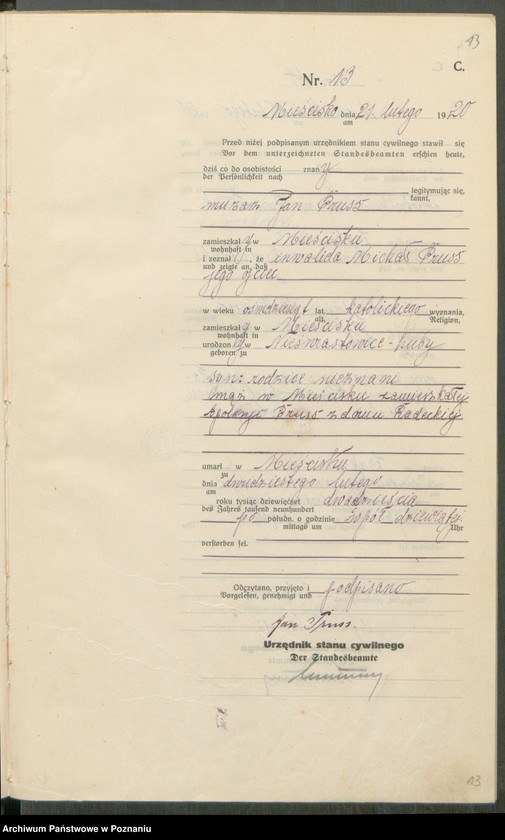 13
C.
Nr. 13
Mieścisko dnia 21. lutego 1920
am
Przed niżej podpisanym urzędnikiem stanu cywilnego stawił się
Vor dem unterzeichneten Standesbeamten erschien heute,
dziś co do osobistości znany
der Persönlichkeit nach
legitymując się,
kannt,
murarz Jan Pruss
zamieszkały w Mieścisku
wohnhaft in
i zeznał, że inwalida Michał Pruss
und zeigte an, daß
jego ojciec
w wieku lat katolickiego wyznania,
alt, Religion,
zamieszkały w Mieścisku
wohnhaft in
urodzony w Nieświastowice-huby
geboren zu
syn: rodzice nieznani
mąż w Mieścisku zamieszkałej
Apolonji Pruss z domu Radeckiej
umarł w Mieścisku
zu
dnia dwudziestego lutego
am
roku tysiąc dziewięćset dwudziestego
des Jahres tausend neunhundert
po połudn. o godzinie wpół dziewiątej.
mittags um Uhr
verstorben sei.
Odczytano, przyjęto i podpisano
Vorgelesen, genehmigt und
Jan Pruss.
Urzędnik stanu cywilnego
Der Standesbeamte
13
Archiwum Państwowe w Poznaniu